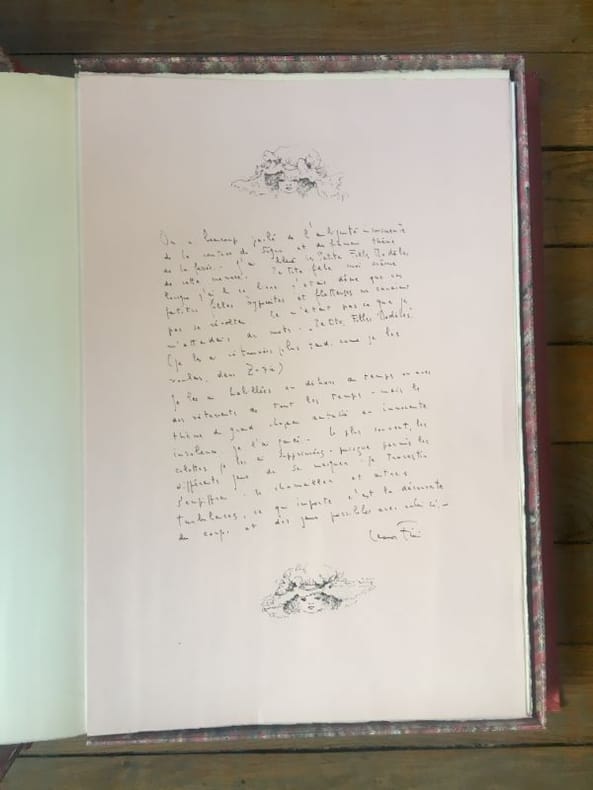 On a beaucoup parlé de l'ambiguité inconsciente
de la comtesse de Ségur et du fameux thème
de la fessée. J'ai les Petites Filles Modèles
de cette . Petite fille moi même
lorsque j'ai lu ce livre j'étais déçue que ces
petites filles hypocrites et ne
pas se révolter. Ce n'était pas ce que je
m'attendais du mot. Petites Filles Modèles.
(je les ai retrouvées plus tard, comme je les
voulais, dans Zazie)
Je les ai habillées en dehors du temps ou avec
des vêtements de tout les temps - mais le
thème du grand chapeau en innocente
insolence, je l'ai gardé. Le plus souvent, les
culottes, je les ai supprimées - presque parmis les
différents jeux de se masquer, se travestir
s'empiffrer, se chamailler et autres
turbulences, ce qui importe c'est la découverte
du corps et des jeux possibles avec celui ci. -
Leonor Fini